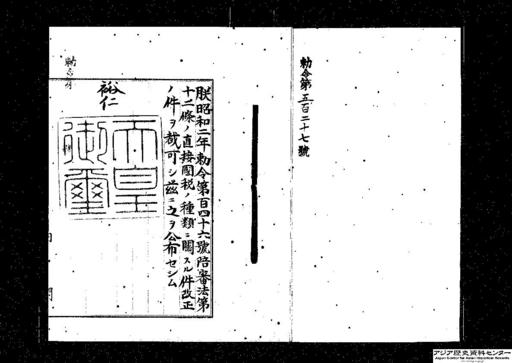 勅令第五百二十七號
朕昭和二年勅令第百四十六號陪審法第
十二條ノ直接國税ノ種類ニ關スル件改正
ノ件ヲ裁可シ茲ニ之ヲ公布セシム
裕仁
天皇
御璽
アジア歴史資料センター
Japan Center for Asian Historical Records